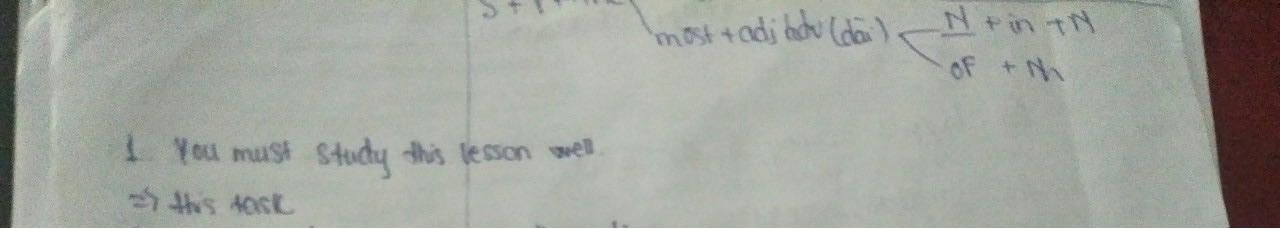 most + adj /adv (dài) N + in + N
OF + Nn
1. You must study this lesson well.
=> this task